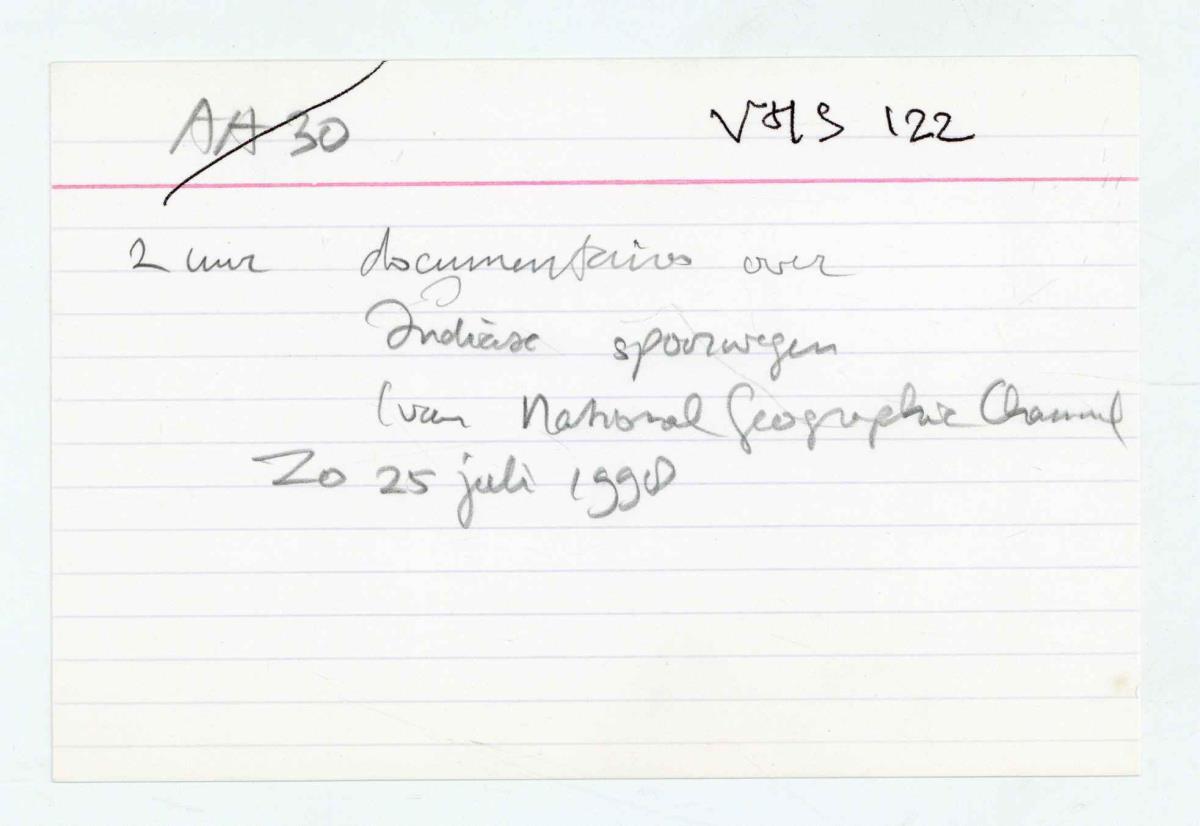 AA 30 VHS 122
2 uur documentaires over
Indiase spoorwegen
(van National Geographic Channel
Zo 25 juli 1998